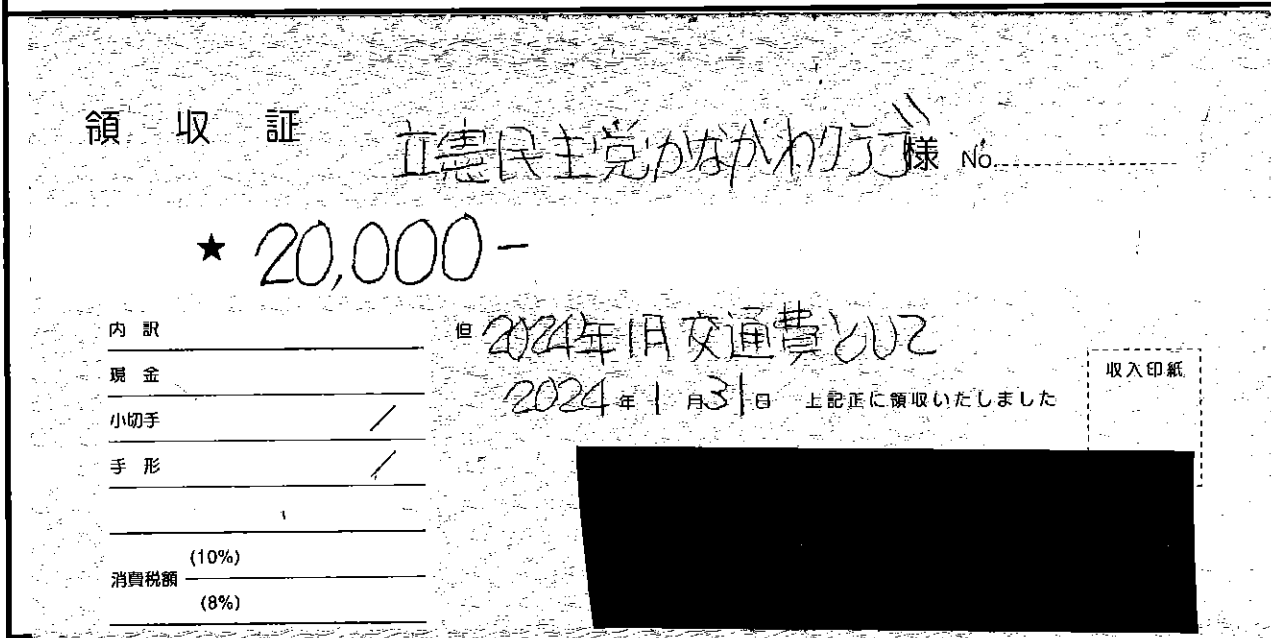 領収証 立憲民主党かながわクラブ 様 No.
★ 20,000-
内訳
但 2024年1月交通費として
現金
2024年1月31日 上記正に領収いたしました
収入印紙
小切手 /
手形 /
(10%)
消費税額
(8%)